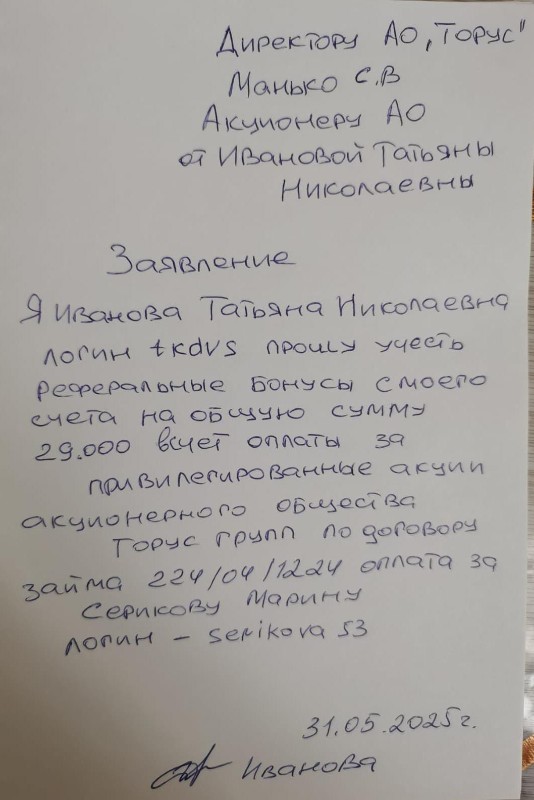 Директору АО „Торус"
Манько С.В
Акционеру АО
от Ивановой Татьяны
Николаевны
Заявление
Я Иванова Татьяна Николаевна
логин tkdvs прошу учесть
реферальные бонусы с моего
счета на общую сумму
29.000 всчет оплаты за
привилегированные акции
акционерного общества
Торус групп по договору
займа 224/04/1224 оплата за
Серикову Марину
логин - serikova 53
31.05.2025г.
Иванова